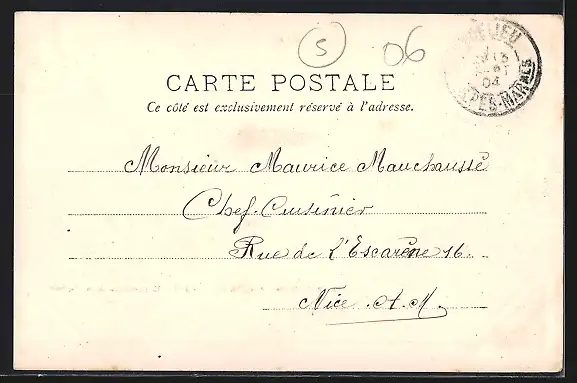 S 06
CARTE POSTALE
Ce côté est exclusivement réservé à l'adresse.
Monsieur Maurice Mauchaussé
Chef-Cuisinier
Rue de l'Escarène 16.
Nice. A. M.
04